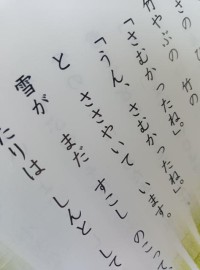 さの
竹やぶの 竹の
「さむかったね」。
「うん、さむかったね」。
と ささやいて います。
雪が まだ すこし のこって、
たりは しんと して